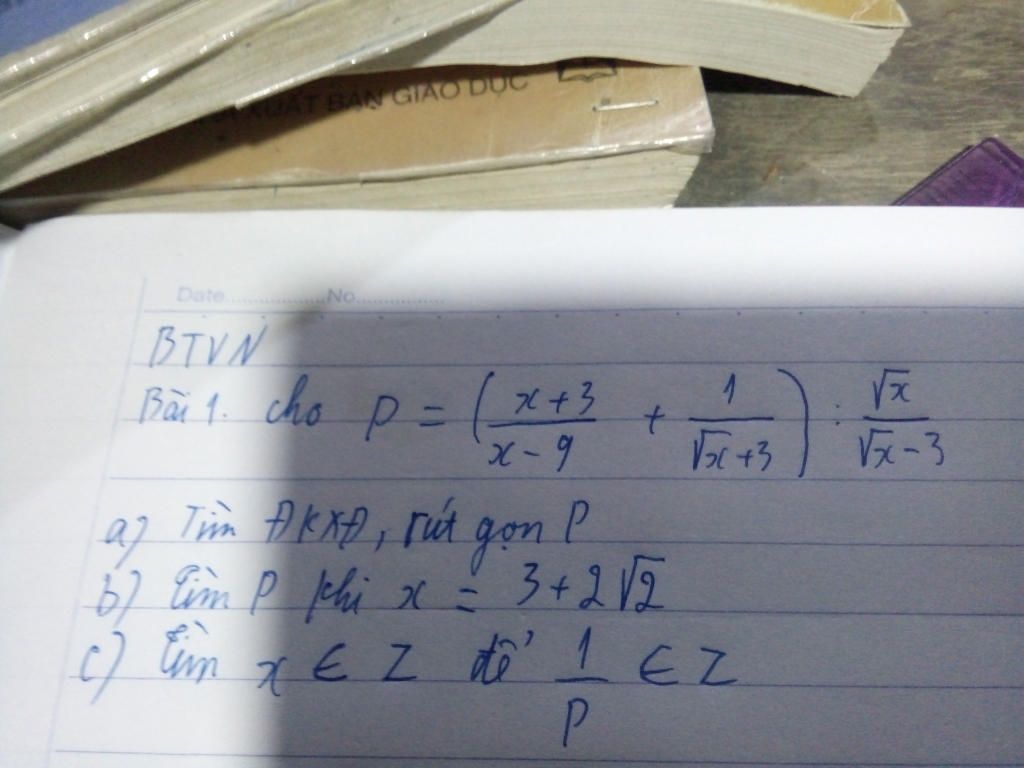 XUẤT BẢN GIÁO DỤC
Date.................No.................
BTVN
Bài 1. cho P = (x+3/x-9 + 1/√x+3) : √x/√x-3
a) Tìm ĐKXĐ, rút gọn P
b) Tìm P khi x = 3+2√2
c) Tìm x ∈ Z để 1/P ∈ Z